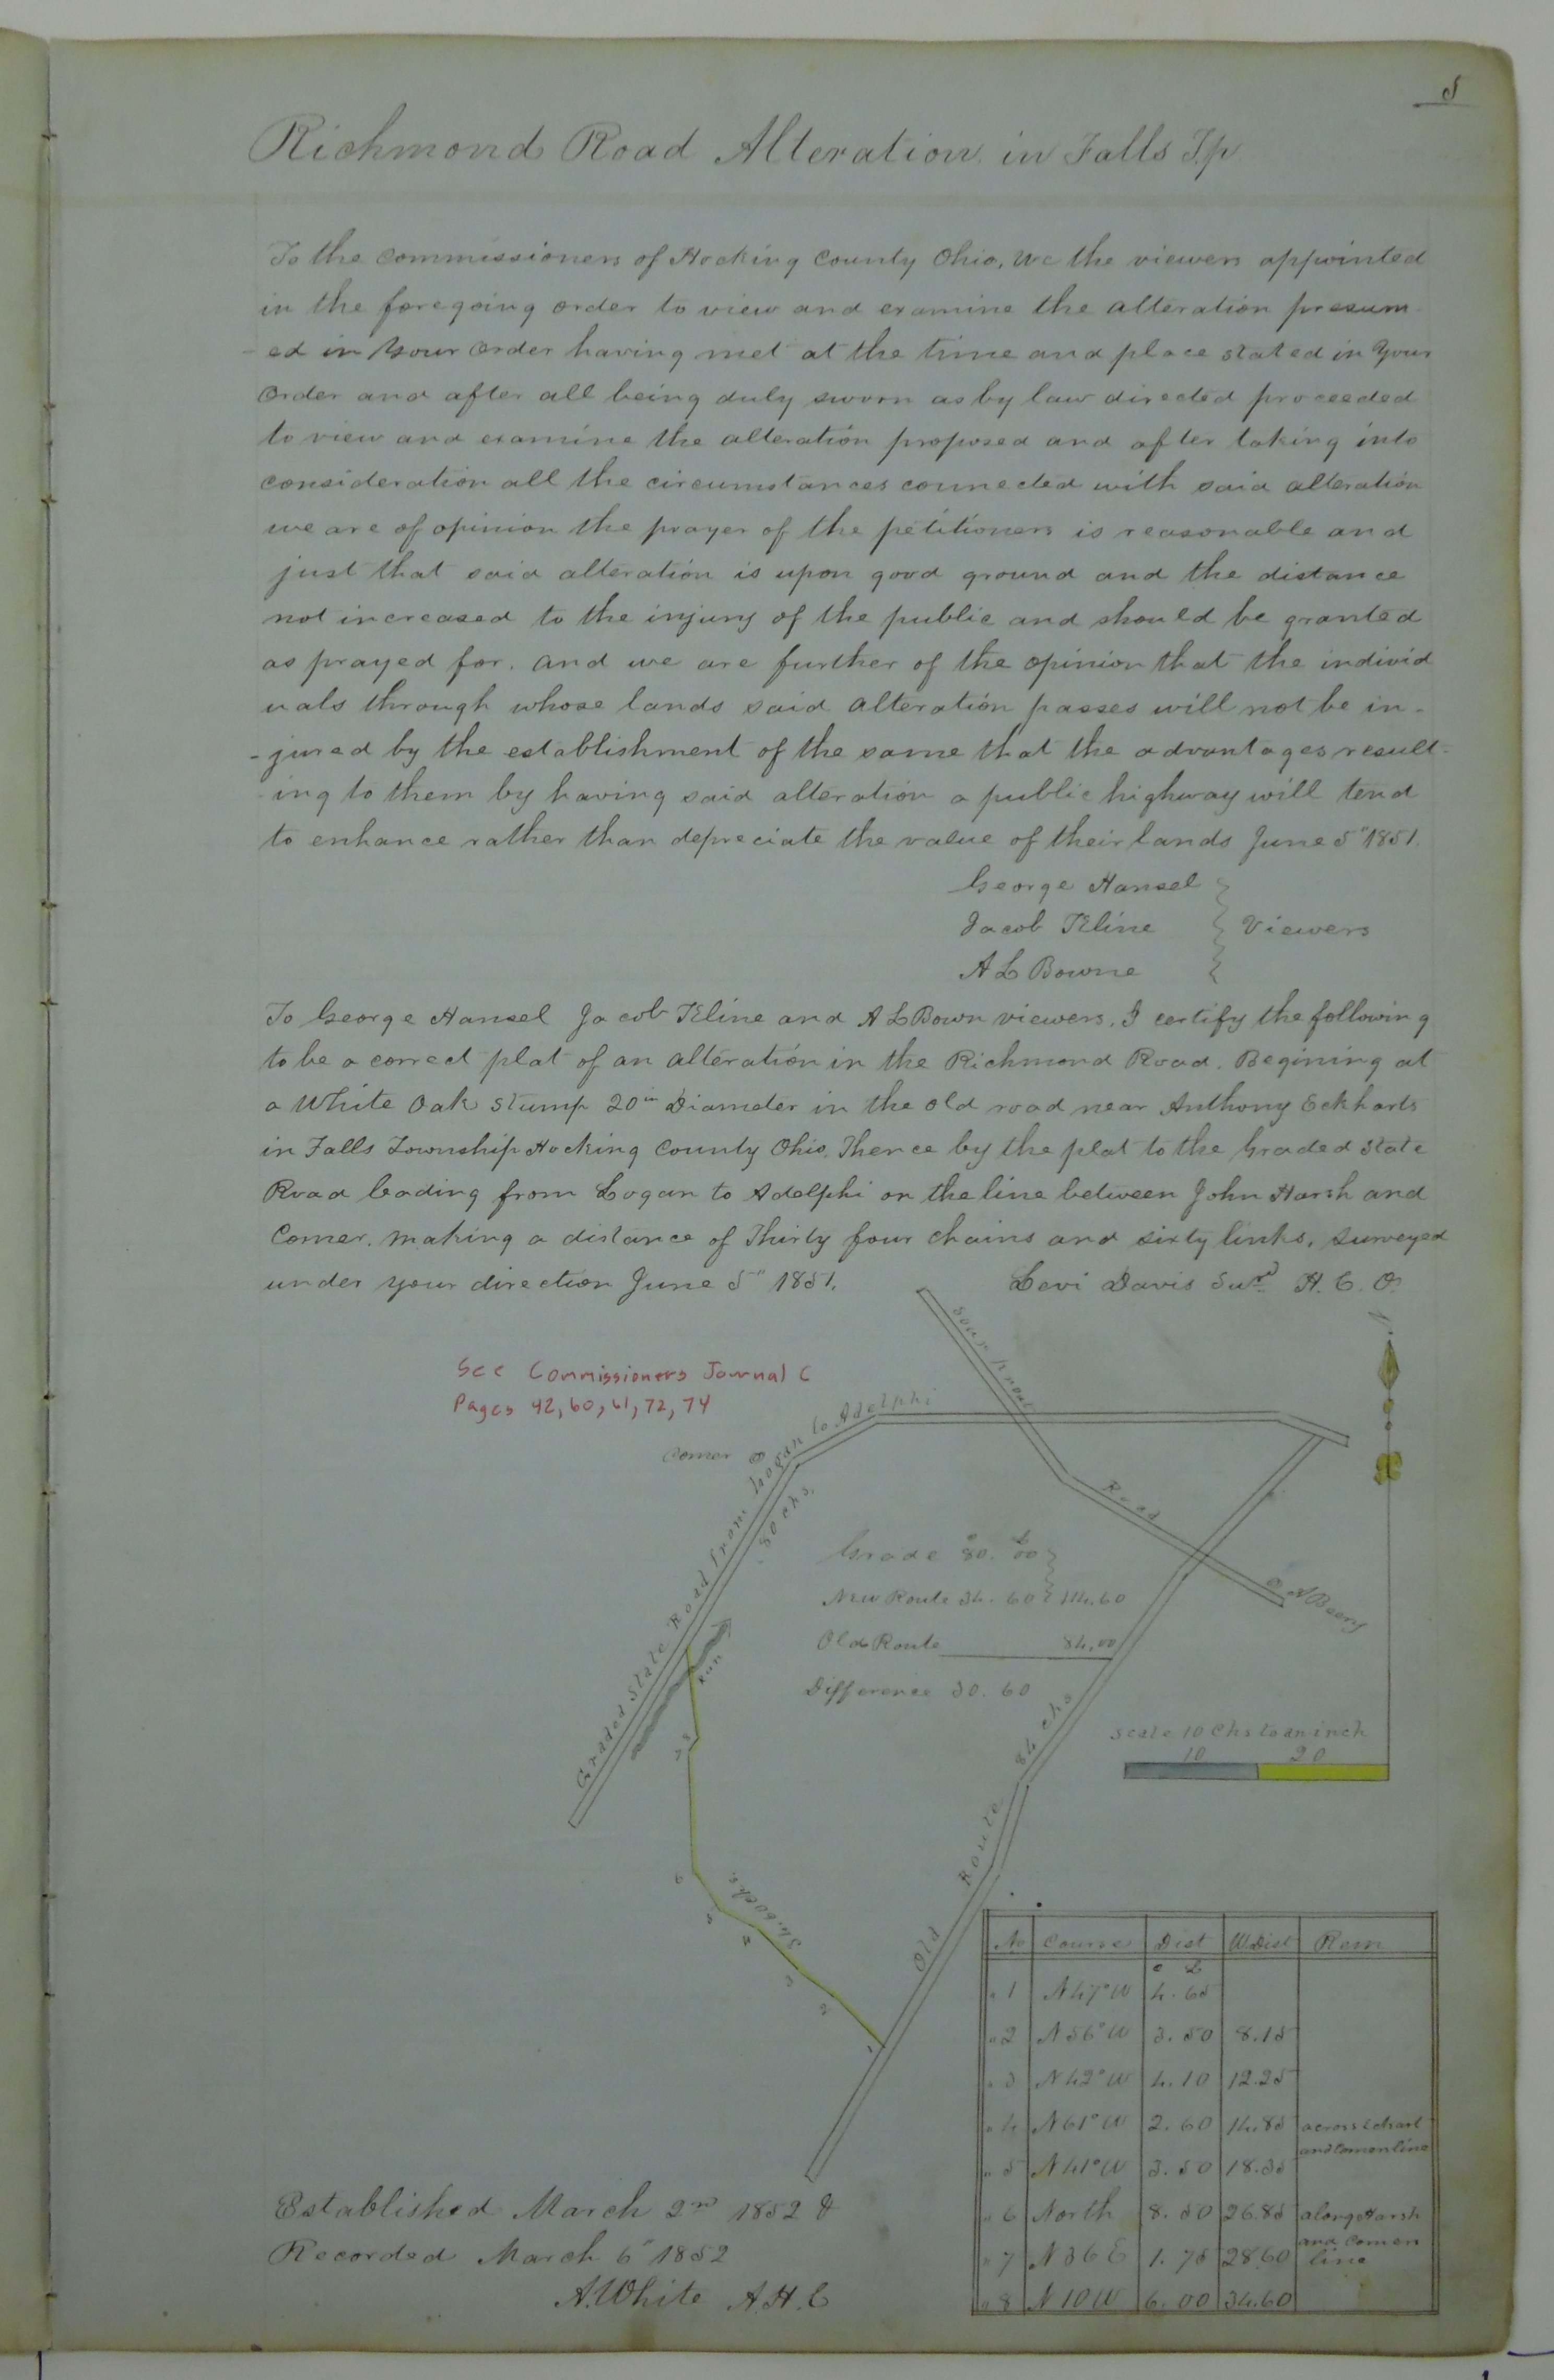 5
Richmond Road Alteration in Falls Tp
To the Commissioners of Hocking County Ohio, We the viewers appointed
in the foregoing order to view and examine the alteration presum
-ed in Your order having met at the time and place stated in Your
order and after all being duly sworn as by law directed proceeded
to view and examine the alteration proposed and after taking into
consideration all the circumstances connected with said alteration
we are of opinion the prayer of the petitioners is reasonable and
just that said alteration is upon good ground and the distance
not increased to the injury of the public and should be granted
as prayed for. and we are further of the opinion that the individ
uals through whose lands said alteration passes will not be in-
-jured by the establishment of the same that the advantages result-
-ing to them by having said alteration a public highway will tend
to enhance rather than depreciate the value of their lands June 5" 1851.
George Hansel
Jacob Kline } Viewers
A L Bowne
To George Hansel Jacob Kline and A L Bown viewers, I certify the following
to be a correct plat of an alteration in the Richmond Road. Begining at
a White Oak Stump 20in Diameter in the old road near Anthony Eckharts
in Falls Township Hocking County Ohio, Thence by the plat to the Graded State
Road leading from Logan to Adelphi on the line between John Harsh and
Comer. making a distance of Thirty four chains and sixty links, surveyed
under your direction June 5" 1851. Levi Davis Surd H. C. O.
See Commissioners Journal C
Pages 42, 60, 61, 72, 74
Comer
Graded State Road from Logan to Adelphi
80 chs.
Road
A Beery
Grade 80. 00
New Route 34. 60 } 114.60
Old Route 84.00
Difference 30. 60
Run
Old Route 84 chs
Scale 10 Chs to an inch
10 20
8
7
6
5
4
3
2
1
34.60 chs.
No Course Dist W Dist Rem
C L
" 1 N 47° W 4. 65
" 2 N 56° W 3. 50 8.15
" 3 N 42° W 4. 10 12.25
" 4 N 61° W 2. 60 14.85 across Eckhart
and Comer line
" 5 N 41° W 3. 50 18.35
" 6 North 8. 50 26.85 along Harsh
and Comers
" 7 N 36 E 1. 75 28.60 line
" 8 N 10 W 6. 00 34.60
Established March 2nd 1852 &
Recorded March 6" 1852
A. White A. H. C